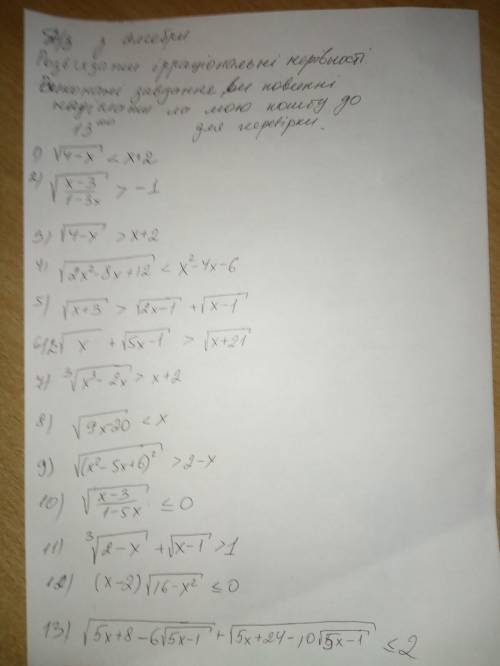 Д/З з алгебри
Розв'язати ірраціональні нерівності.
Виконане завдання ви повинні
надіслати на мою пошту до
13⁰⁰ для перевірки.
1) √(4-x) < x+2
2) √((x-3)/(1-3x)) > -1
3) √(4-x) > x+2
4) √(2x²-8x+12) < x²-4x-6
5) √(x+3) > √(2x-1) + √(x-1)
6) 2√x + √(5x-1) > √(x+21)
7) ³√(x³-2x) > x+2
8) √(9x-20) < x
9) √((x²-5x+6)²) > 2-x
10) √((x-3)/(1-5x)) ≤ 0
11) ³√(2-x) + √(x-1) > 1
12) (x-2)√(16-x²) ≤ 0
13) √(5x+8-6√(5x-1)) + √(5x+24-10√(5x-1)) ≤ 2